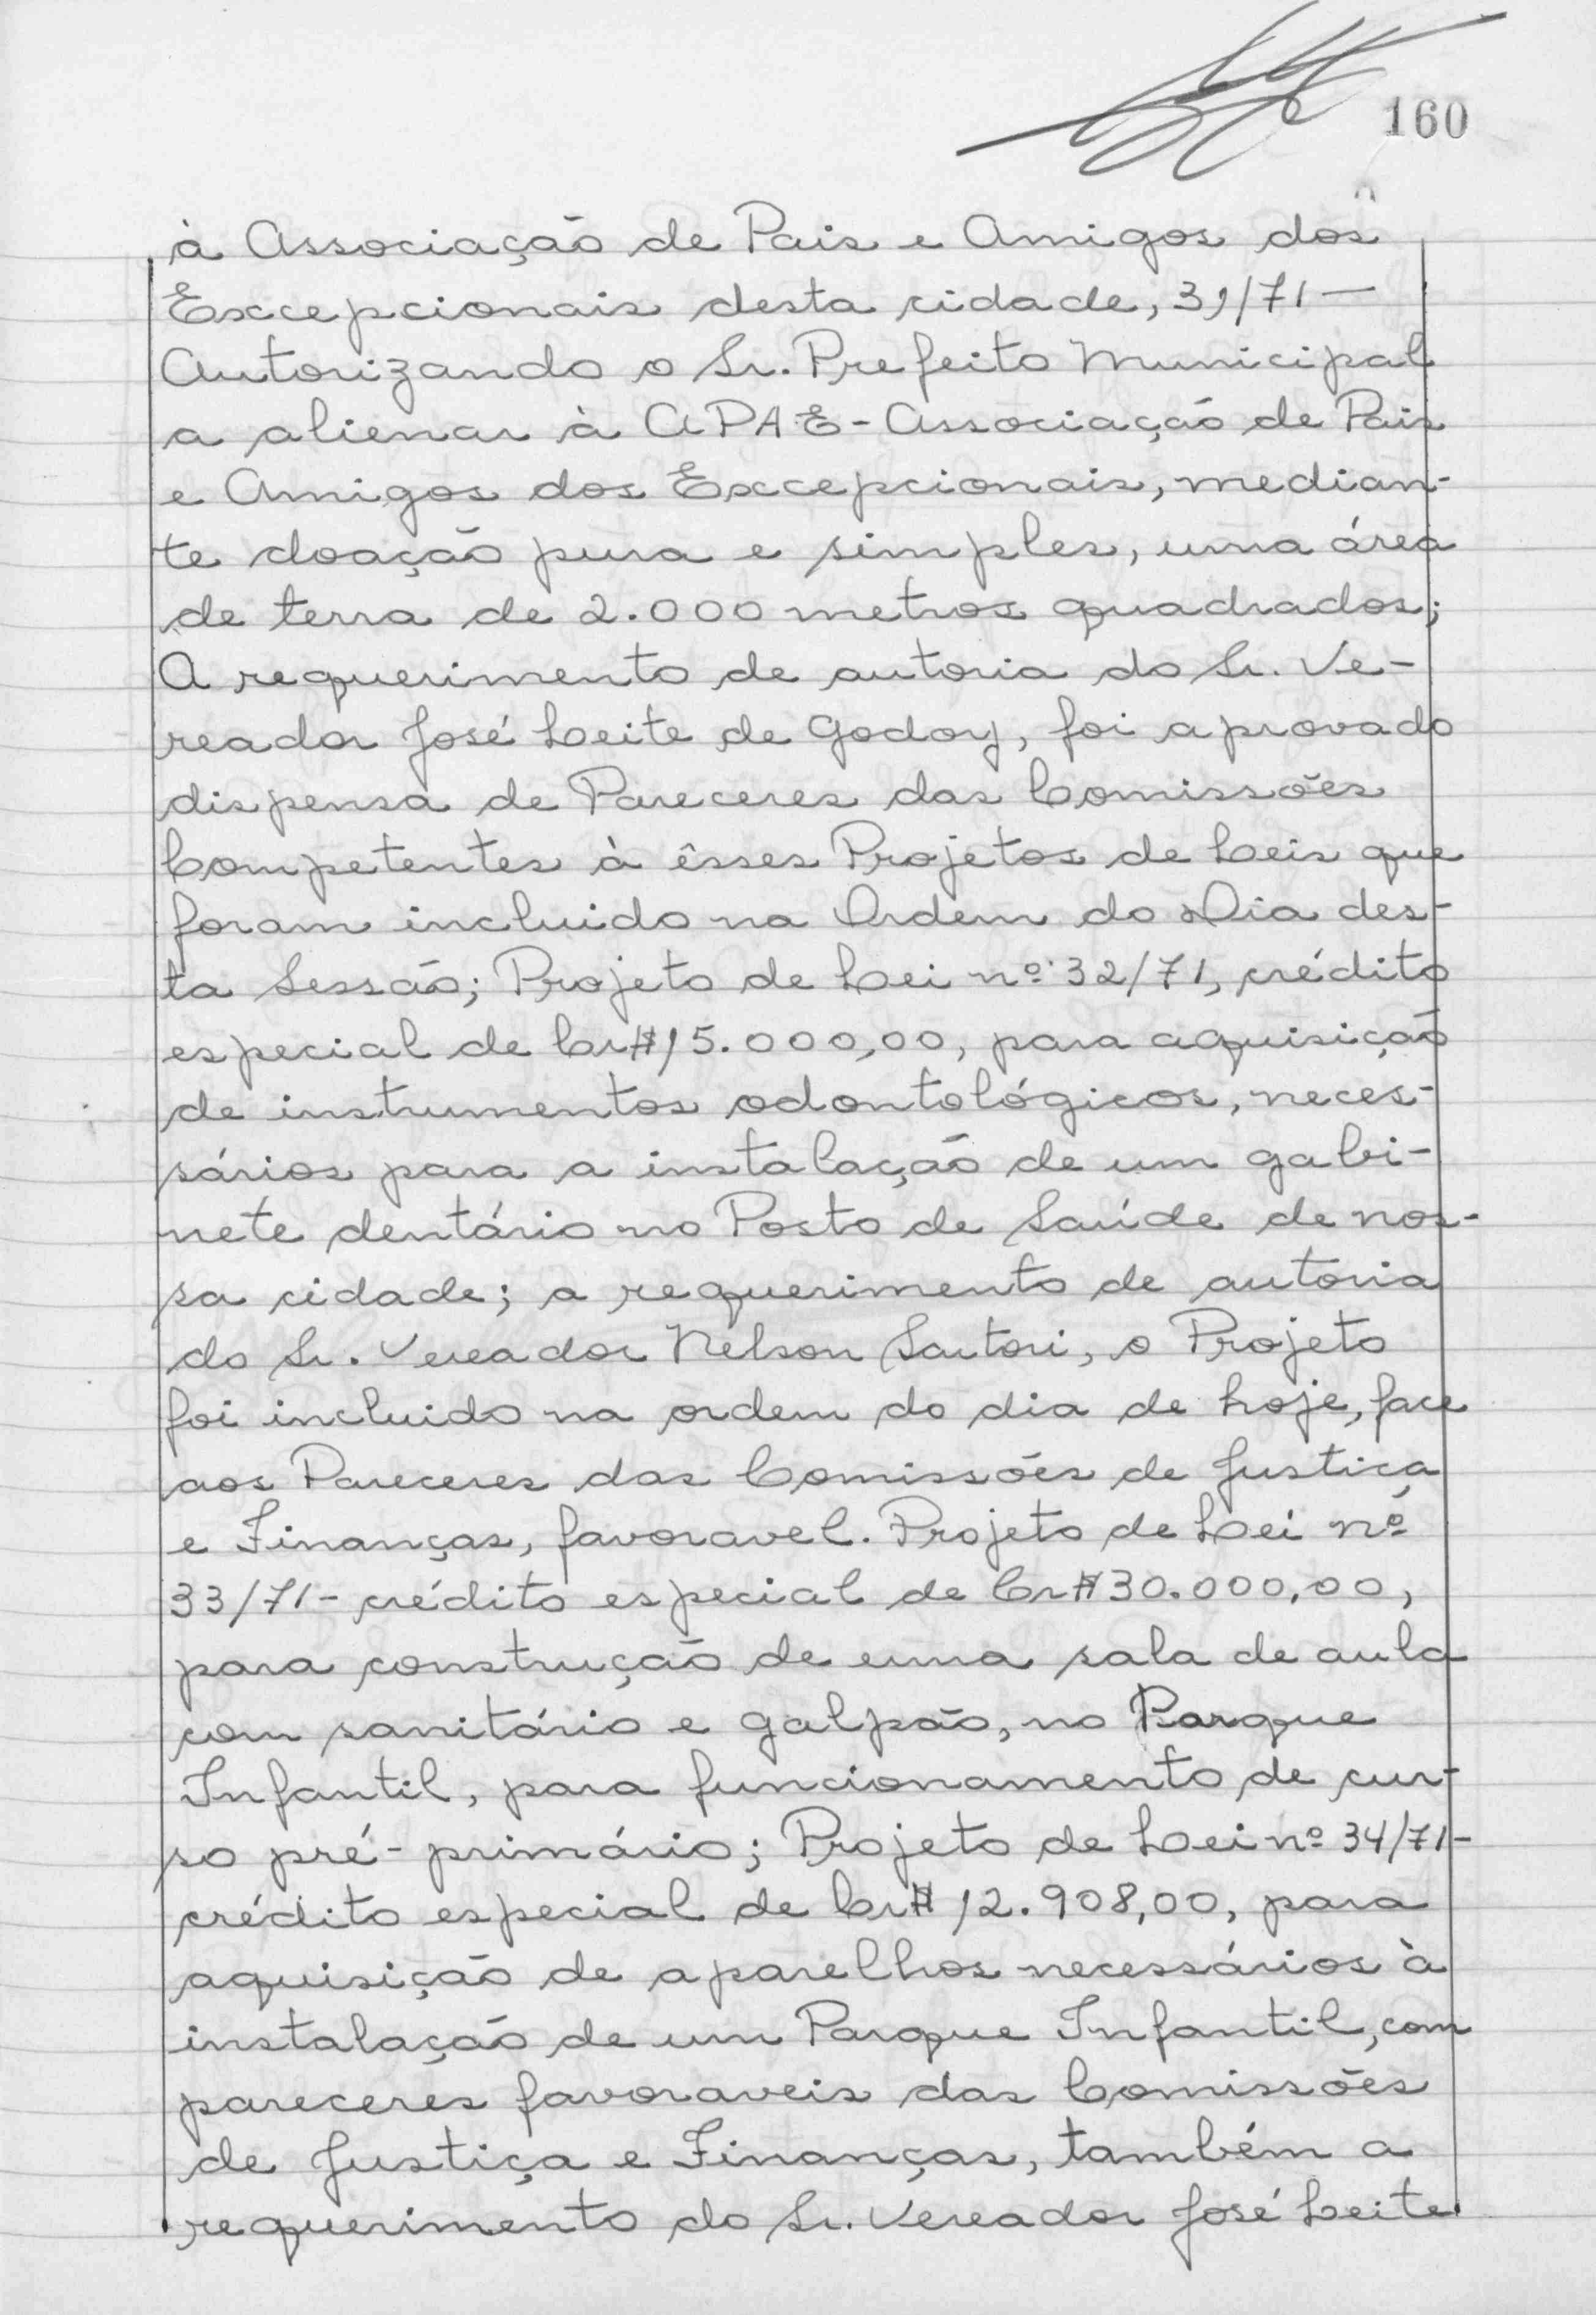 160
à Associação de Pais e Amigos dos
Excepcionais desta cidade, 31/71 —
Autorizando o Sr. Prefeito Municipal
a alienar à APAE - Associação de Pais
e Amigos dos Excepcionais, median-
te doação pura e simples, uma área
de terra de 2.000 metros quadrados;
A requerimento de autoria do Sr. Ve-
reador José Leite de Godoy, foi aprovado
dispensa de Pareceres das Comissões
Competentes à êsses Projetos de Leis que
foram incluido na Ordem do Dia des-
ta Sessão; Projeto de Lei nº 32/71, crédito
especial de Cr$15.000,00, para aquisição
de instrumentos odontológicos, neces-
sários para a instalação de um gabi-
nete dentário no Posto de Saúde de nos-
sa cidade; a requerimento de autoria
do Sr. Vereador Nelson Sartori, o Projeto
foi incluido na ordem do dia de hoje, face
aos Pareceres das Comissões de Justiça
e Finanças, favoravel. Projeto de Lei nº
33/71 - crédito especial de Cr$30.000,00,
para construção de uma sala de aula
com sanitário e galpão, no Parque
Infantil, para funcionamento de cur-
so pré-primário; Projeto de Lei nº 34/71-
crédito especial de Cr$ 12.908,00, para
aquisição de aparelhos necessários à
instalação de um Parque Infantil, com
pareceres favoraveis das Comissões
de Justiça e Finanças, também a
requerimento do Sr. Vereador José Leite